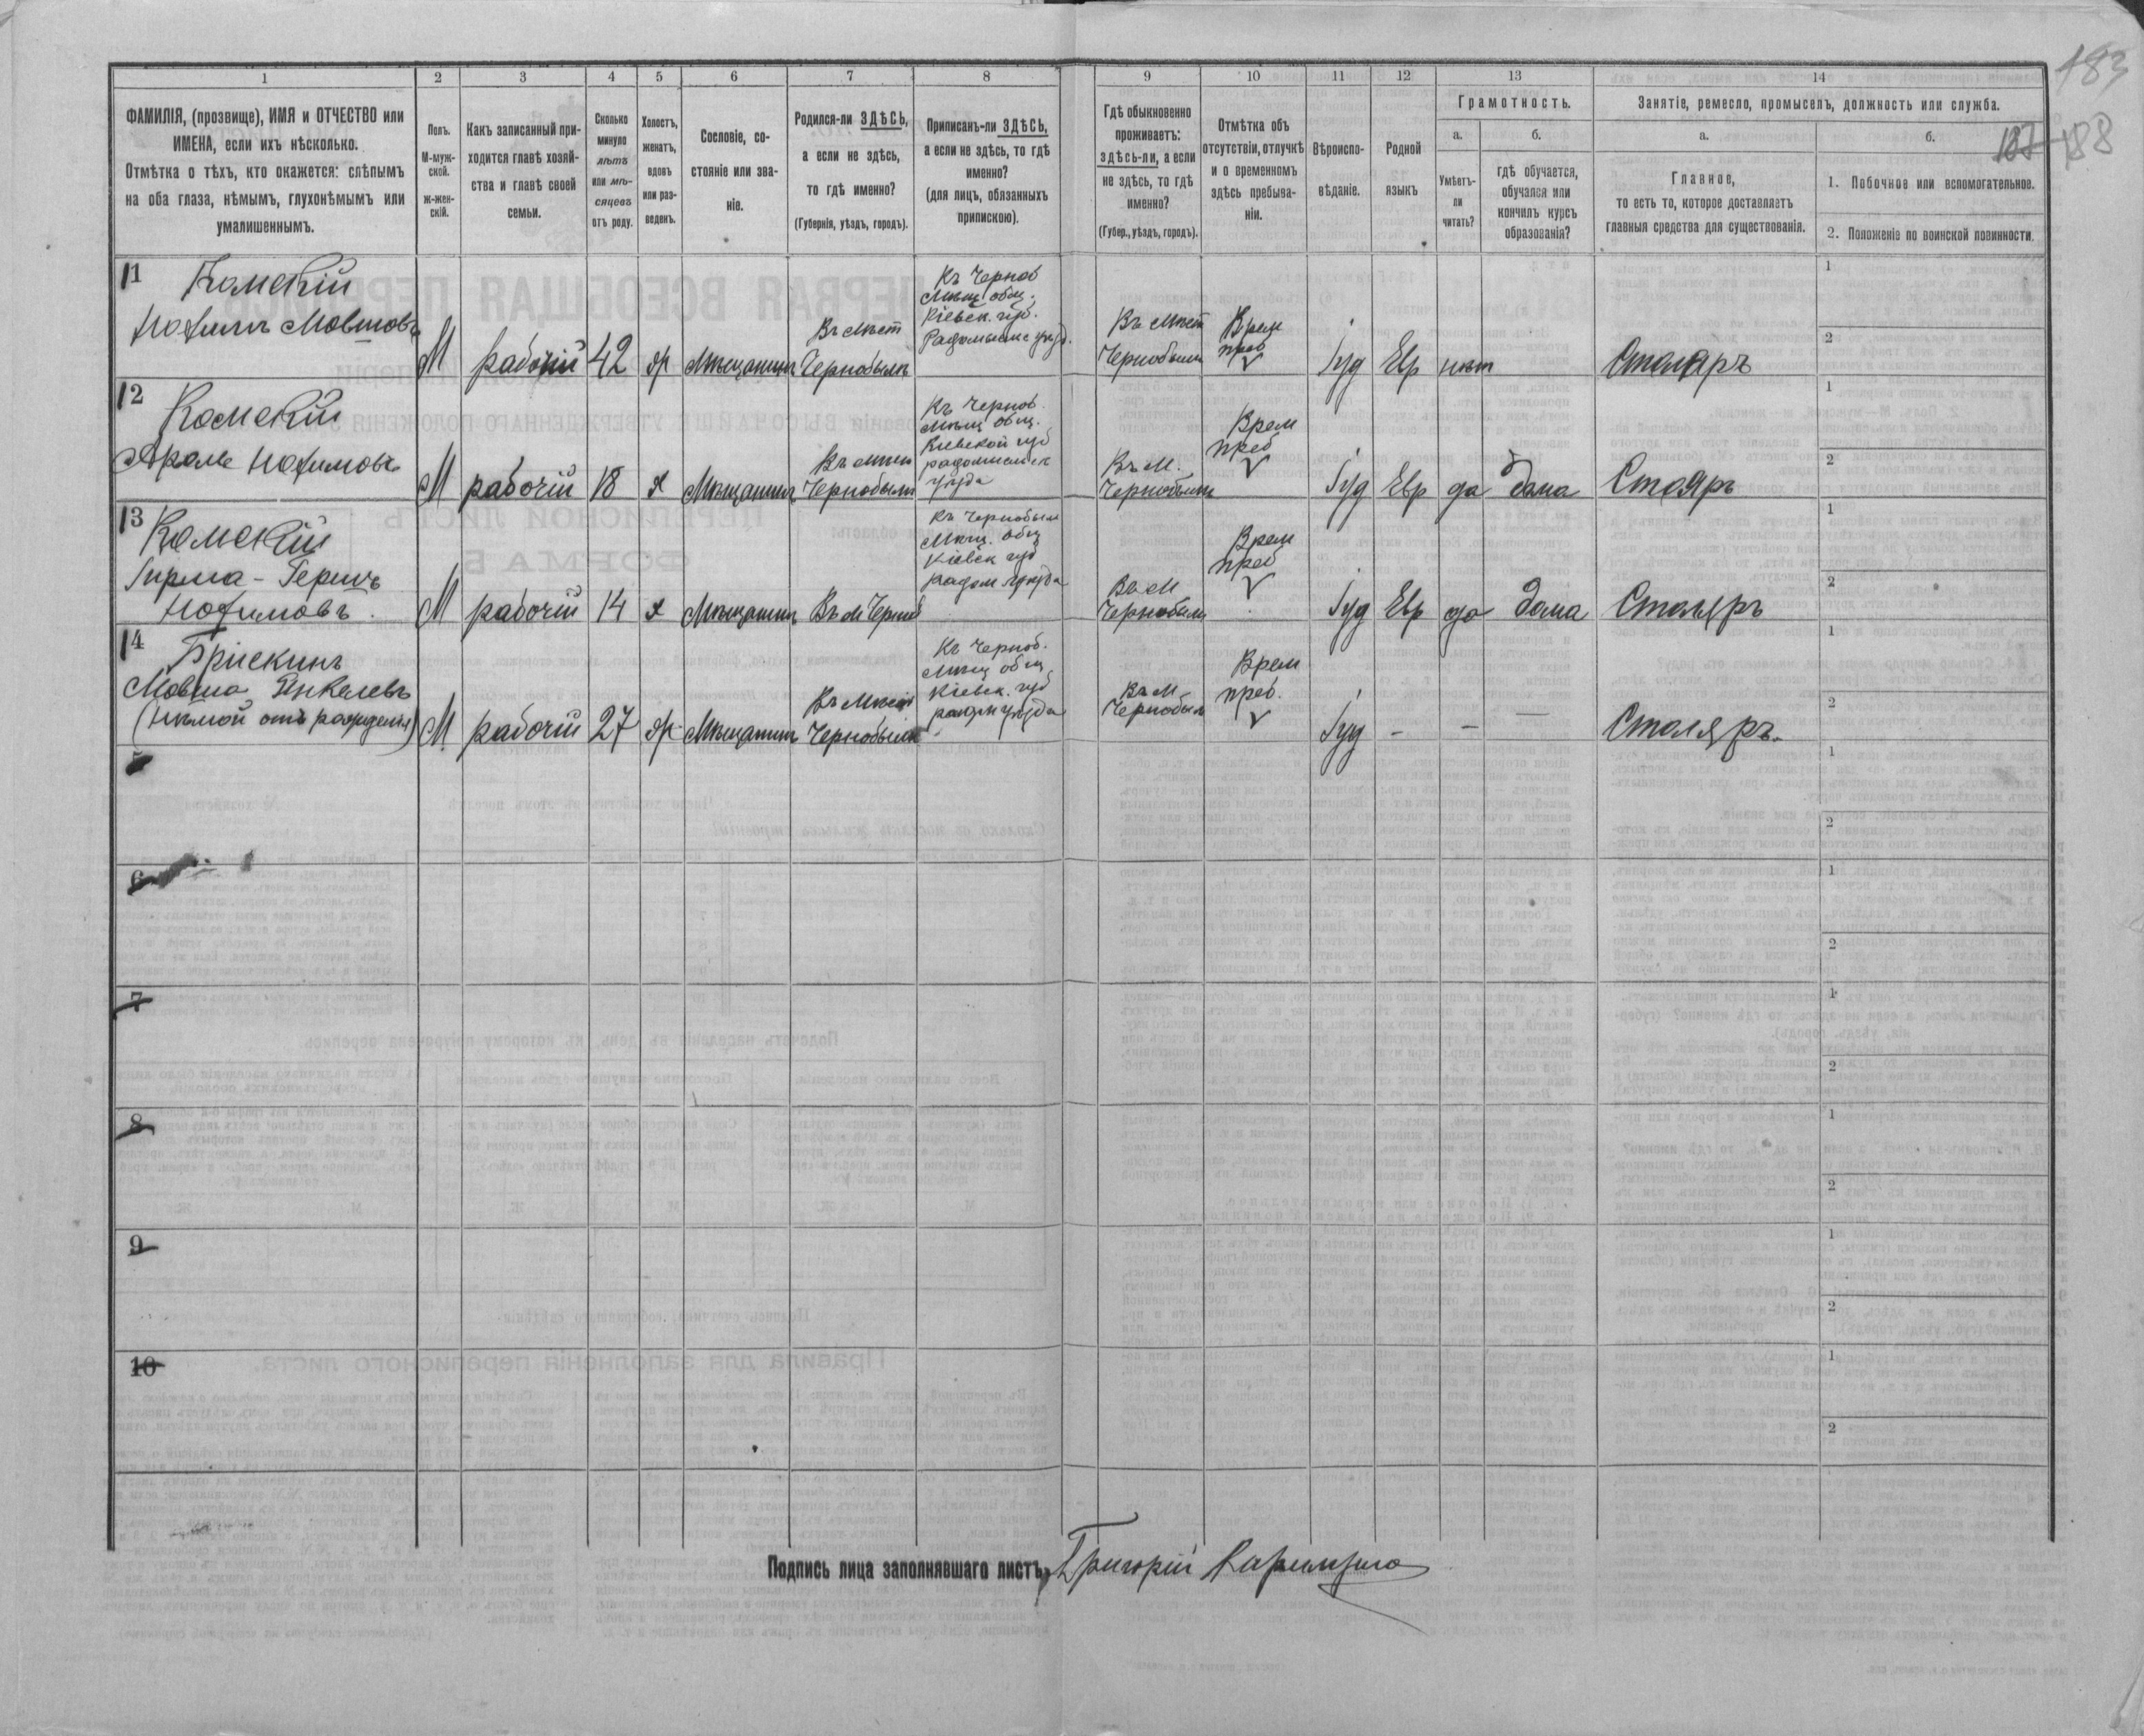 183
187 188
1 2 3 4 5 6 7 8 9 10 11 12 13 14
ФАМИЛІЯ, (прозвище), ИМЯ и ОТЧЕСТВО или
ИМЕНА, если ихъ нѣсколько.
Отмѣтка о тѣхъ, кто окажется: слѣпымъ
на оба глаза, нѣмымъ, глухонѣмымъ или
умалишеннымъ.
Полъ.
М-муж-
ской.
Ж-жен-
скій.
Какъ записанный при-
ходится главѣ хозяй-
ства и главѣ своей
семьи.
Сколько
минуло
лѣтъ
или мѣ-
сяцевъ
отъ роду.
Холостъ,
женатъ,
вдовъ
или раз-
веденъ.
Сословіе, со-
стояніе или зва-
ніе.
Родился-ли ЗДѢСЬ,
а если не здѣсь,
то гдѣ именно?
(Губернія, уѣздъ, городъ).
Приписанъ-ли ЗДѢСЬ,
а если не здѣсь, то гдѣ
именно?
(для лицъ, обязанныхъ
припискою).
Гдѣ обыкновенно
проживаетъ:
здѣсь-ли, а если
не здѣсь, то гдѣ
именно?
(Губер., уѣздъ, городъ).
Отмѣтка объ
отсутствіи, отлучкѣ
и о временномъ
здѣсь пребыва-
ніи.
Вѣроиспо-
вѣданіе.
Родной
языкъ
Грамотность.
а.
Умѣетъ-
ли
читать?
б.
гдѣ обучается,
обучался или
кончилъ курсъ
образованія?
Занятіе, ремесло, промыселъ, должность или служба.
а.
Главное,
то есть то, которое доставляетъ
главныя средства для существованія.
б.
1. Побочное или вспомогательное.
2. Положеніе по воинской повинности.
11
Комскій
Нохимъ Мовшовъ
М
рабочій
42
Мѣщанинъ
Въ мѣст
Чернобылъ
Къ Черноб
Мѣщ общ.
Кіевск. губ.
Въ мѣст
Чернобыли
Врем
преб
Іуд
Евр
нѣт
Столяръ
1
2
12
Комскій
Нохимовъ
М
рабочій
18
х
Мѣщанинъ
Чернобыли
Къ Чернов.
Мѣщ общ.
Кіевской губ
уѣзда
Въ М.
Чернобыли
Врем
преб
Іуд
Евр
да
дома
Столяръ
1
2
13
Комскій
Нохимовъ
М
рабочій
14
х
Мѣщанинъ
Въ М Черноб
Къ Чернобыл
Мѣщ. общ
Кіевск губ
радом уѣзда
Въ М
Чернобыли
Врем
преб
Іуд
Евр
да
дома
Столяръ
1
2
14
Брискинъ
Мовша Янкелевъ
(Нѣмой отъ рожденія)
М
рабочій
27
Мѣщанинъ
Чернобыли
Къ Черноб.
Мѣщ общ.
Кіевск. губ
радом уѣзда
Въ М
Чернобыл
Врем
преб.
Іуд
-
-
—
Столяръ.
1
2
5
1
2
6
1
2
7
1
2
8
1
2
9
1
2
10
1
2
Подпись лица заполнявшаго листъ, Григорій